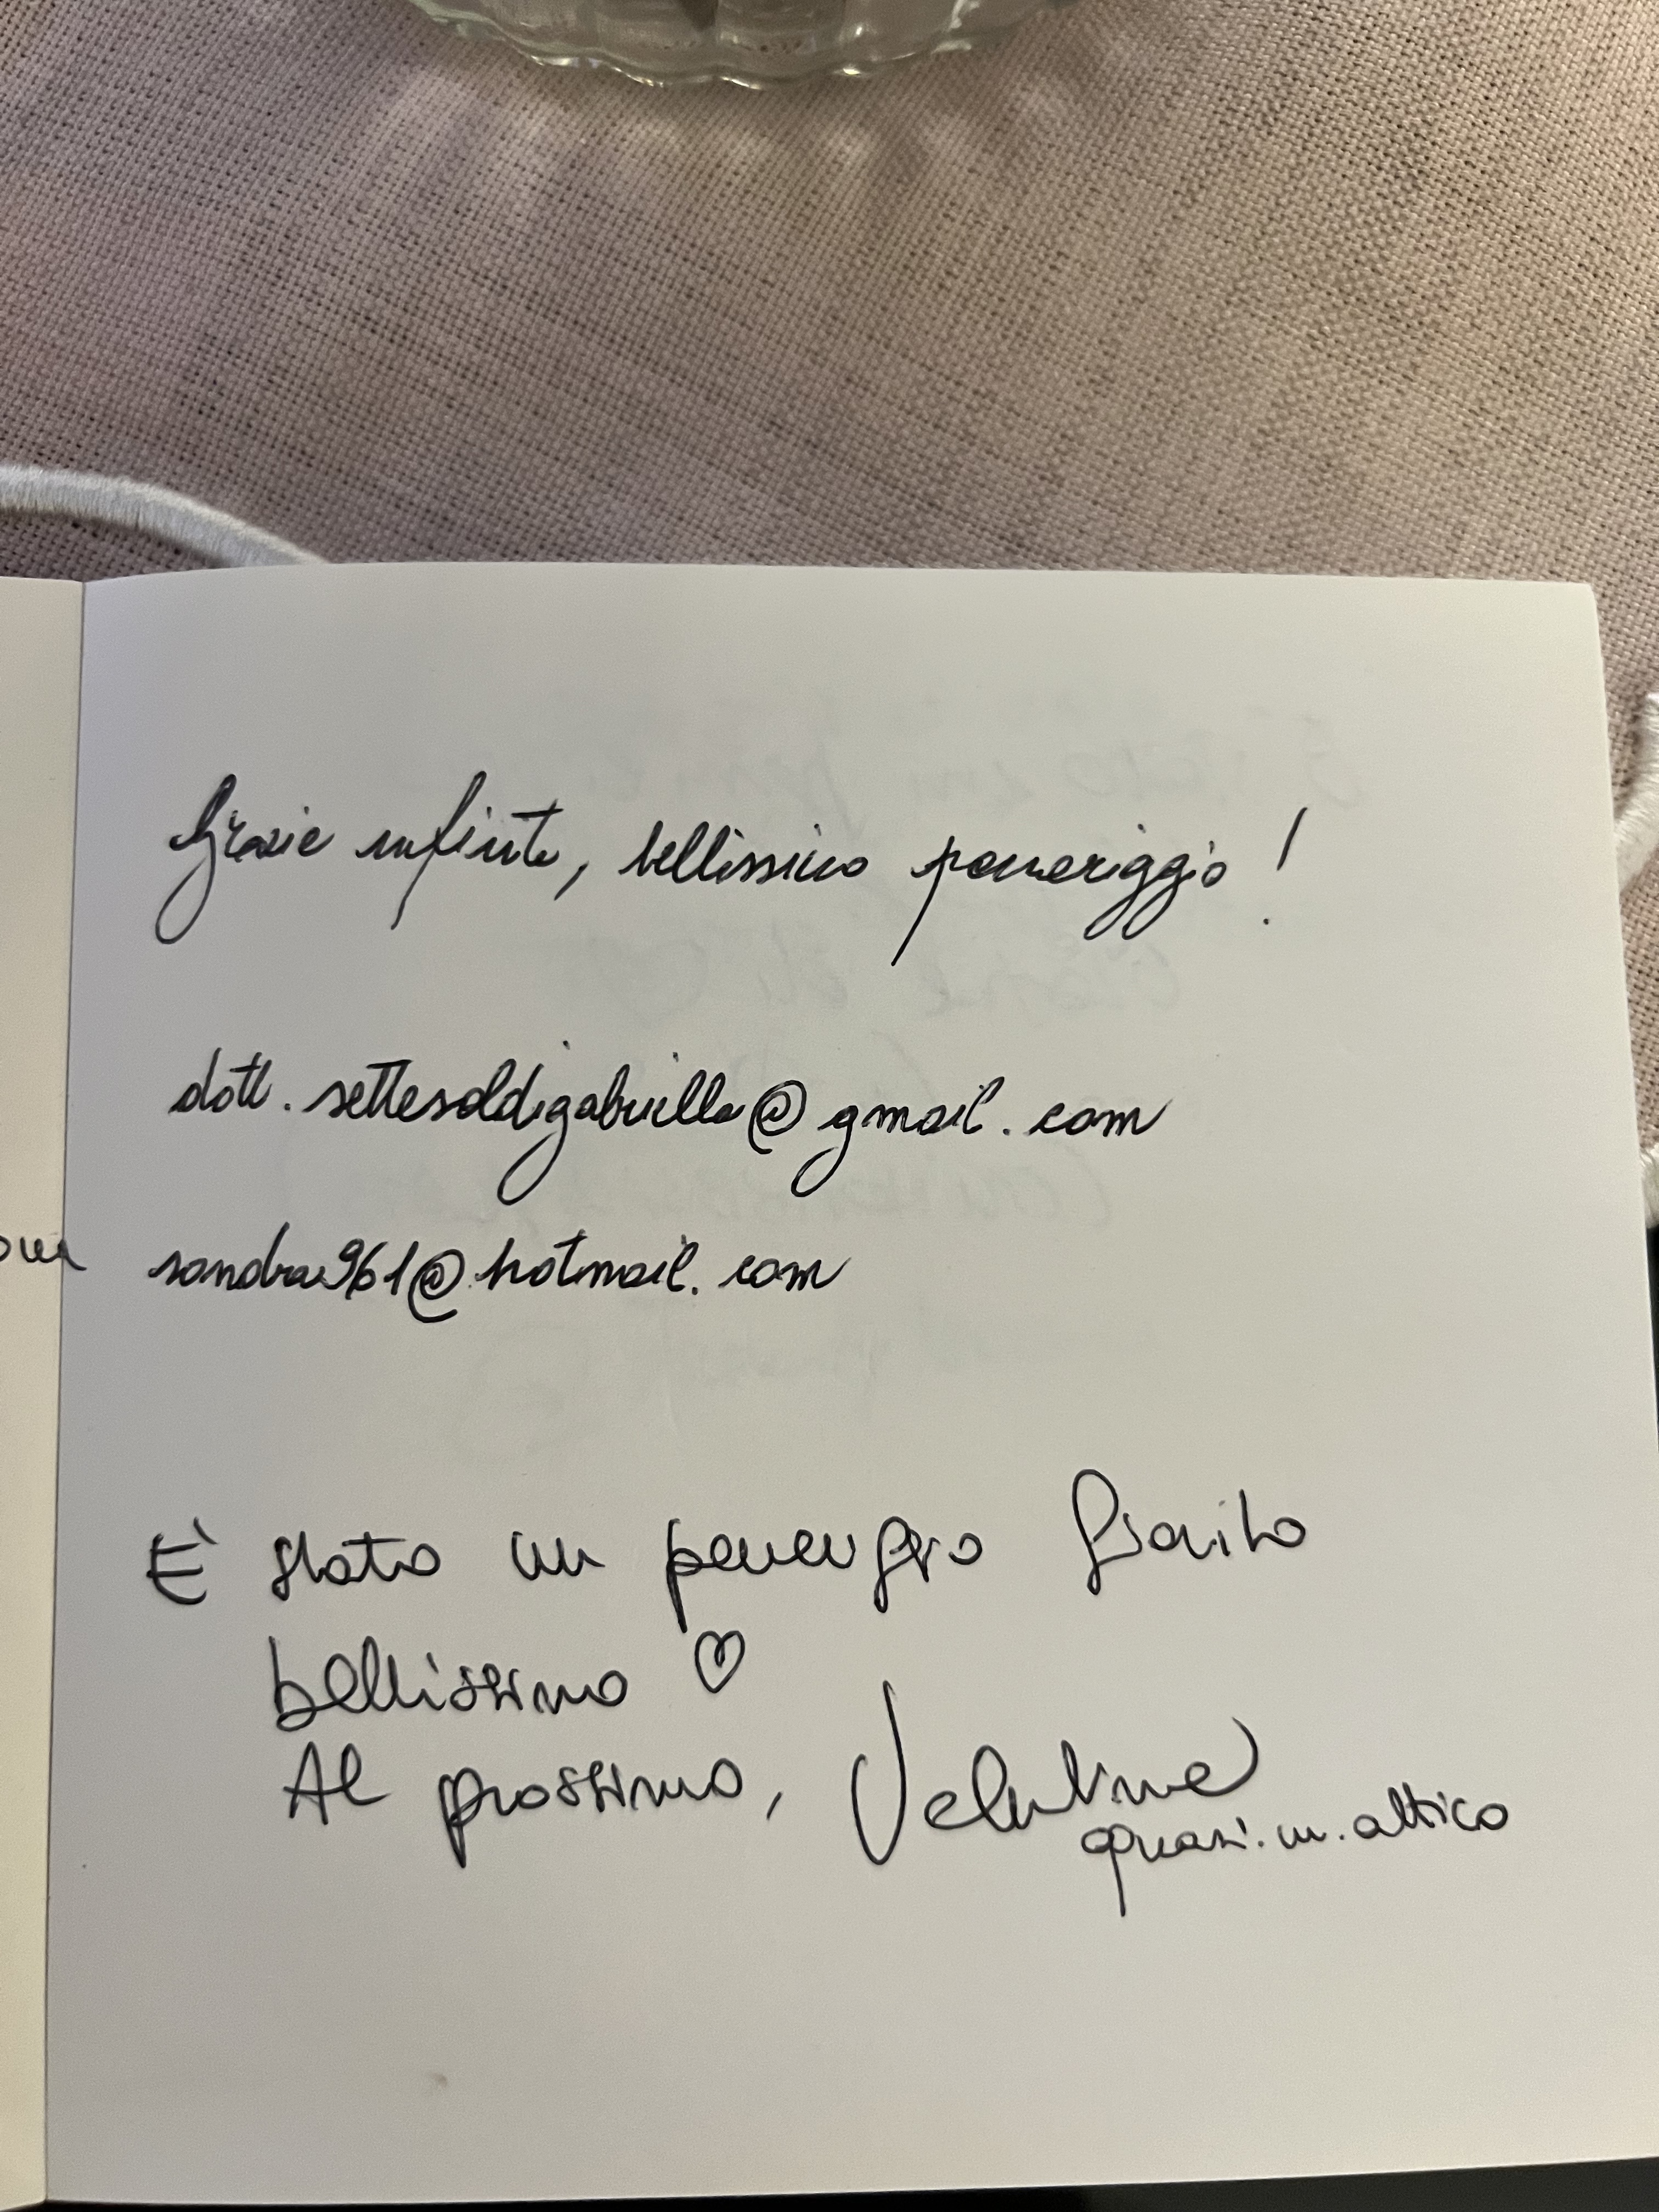 Grazie infinite, bellissimo pomeriggio!
dott.settesoldigabriella@gmail.com
sandra961@hotmail.com
È stato un pomeriggio
bellissimo ♡
Al prossimo, Valentina
quasi.in.attico